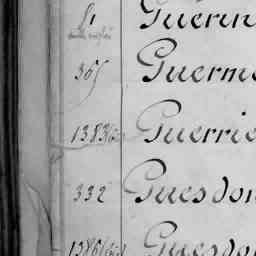 Guerin
365 Guerm
1383 Guerrie
332 Guesdon
1386 Guesdo